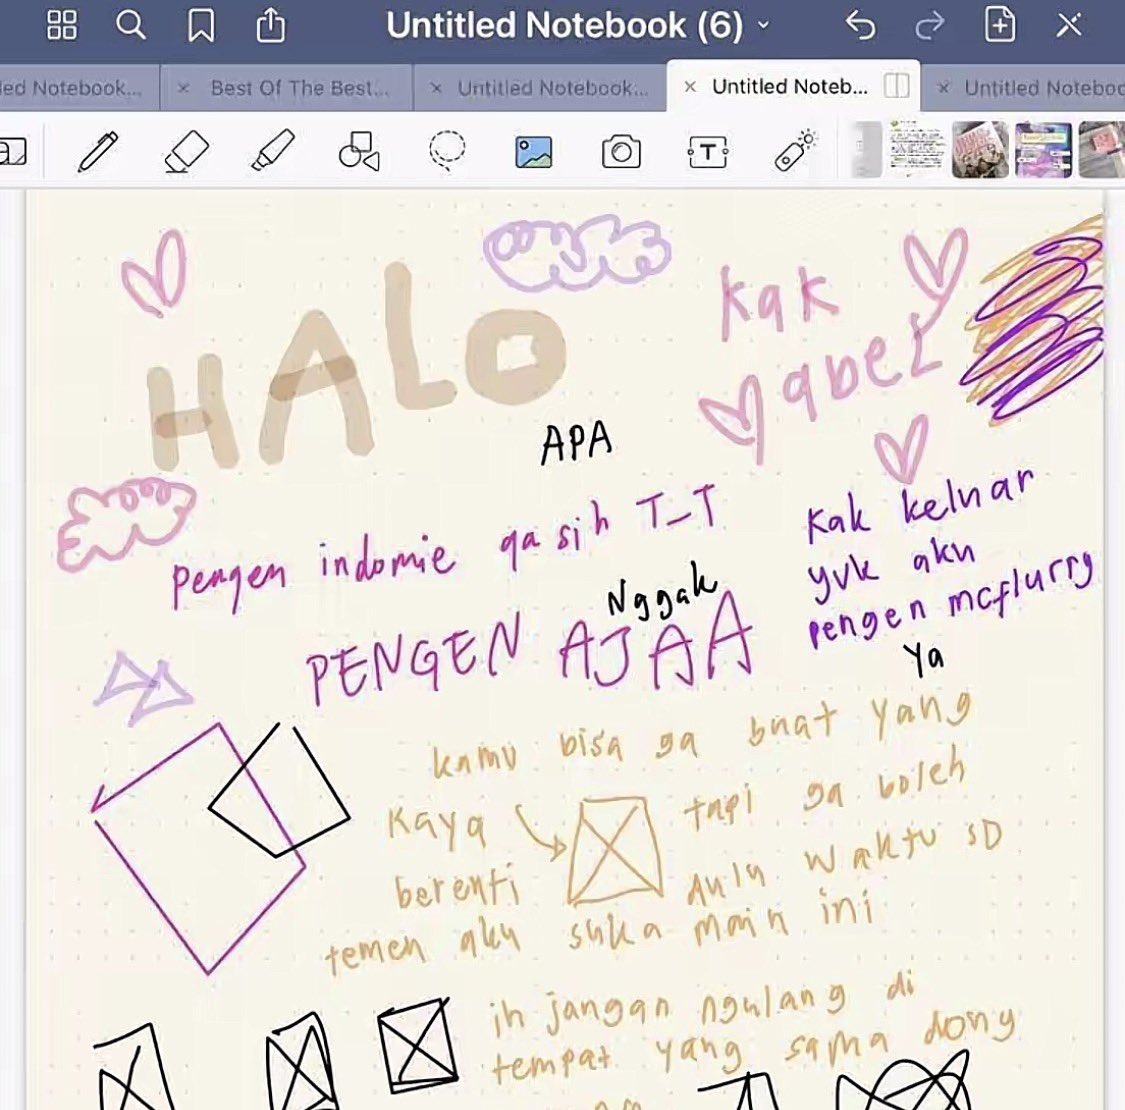 Untitled Notebook (6)
led Notebook...
Best Of The Best...
Untitled Notebook...
Untitled Noteb...
Untitled Noteboo
T
HALO
kak
qbel
APA
pengen indomie ga sih T_T
Nggak
PENGEN AJAA
Kak keluar
yuk aku
pengen mcflurry
Ya
kamu bisa ga buat yang
kaya tapi ga boleh
berenti dulu waktu SD
temen aku suka main ini
ih jangan ngulang di
tempat yang sama dong